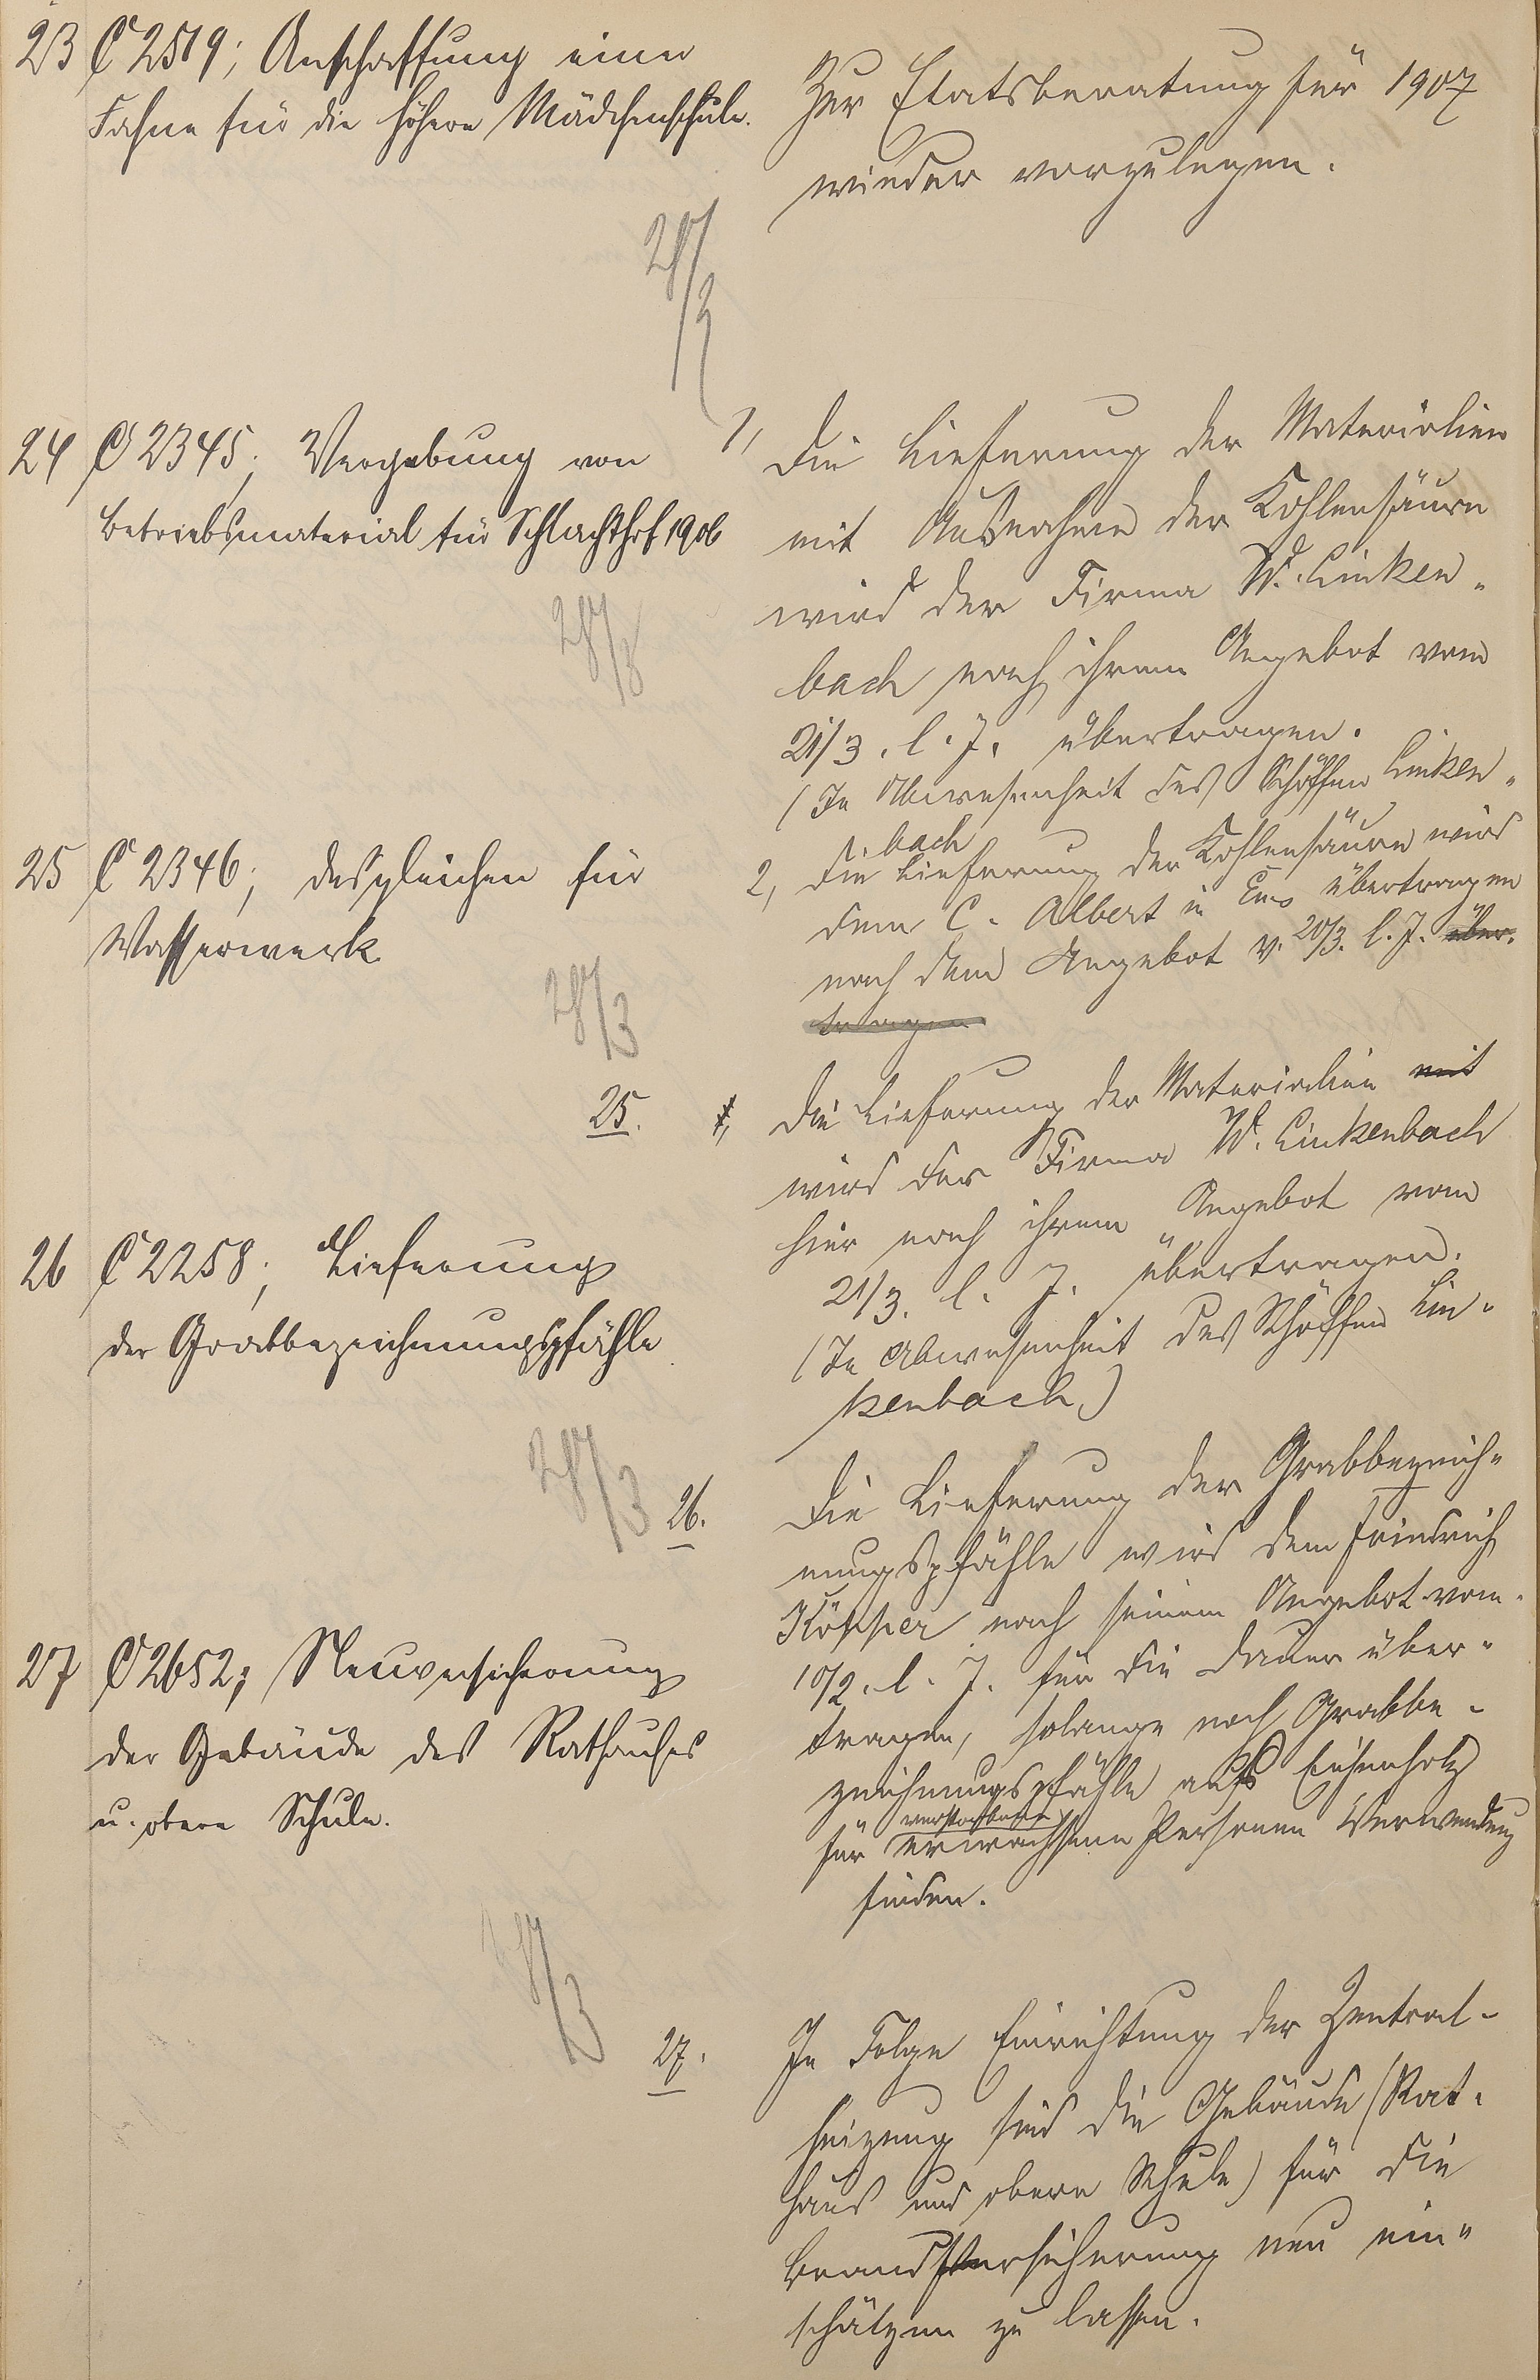 23 C 2519; Anschaffung einer
Fahne für die höhere Mädchenschule.
Zur Etatsberatung für 1907
wieder vorzulegen.
28/3
24 C 2345; Vergebung von
Betriebsmaterial für Schlachthof 1906
28/3
1, Die Lieferung der Materialien
mit Ausnahme der Kohlensäure
wird der Firma W. Linken-
bach nach ihrem Angebot vom
21/3. l. J. übertragen.
(In Abwesenheit des Schöffen Linken-
bach
2, Die Lieferung der Kohlensäure wird
dem C. Albert in Ems übertragen
nach dem Angebot v. 20/3. l. J. über-
tragen
25 C 2346; desgleichen für
Wasserwerk
28/3
25. 1, Die Lieferung der Materialien mit
wird der Firma W. Linkenbach
hier nach ihrem Angebot vom
21/3. l. J. übertragen.
(In Abwesenheit des Schöffen Lin-
kenbach)
26 C 2258; Lieferung
der Grabbezeichnungspfähle
28/3
26. Die Lieferung der Grabbezeich-
nungspfähle wird dem Friedrich
Köpper nach seinem Angebot vom
10/2. l. J. für die Dauer über-
tragen, solange noch Grabbe-
zeichnungspfähle aus Eichenholz
verstorbene
für erwachsene Personen Verwendung
finden.
27 C 2652; Neuversicherung
der Gebäude des Rathauses
u. obere Schule.
28/3
27. In Folge Einrichtung der Zentral-
heizung sind die Gebäude (Rat-
haus und obere Schule) für die
Brandversicherung neu ein-
schätzen zu lassen.